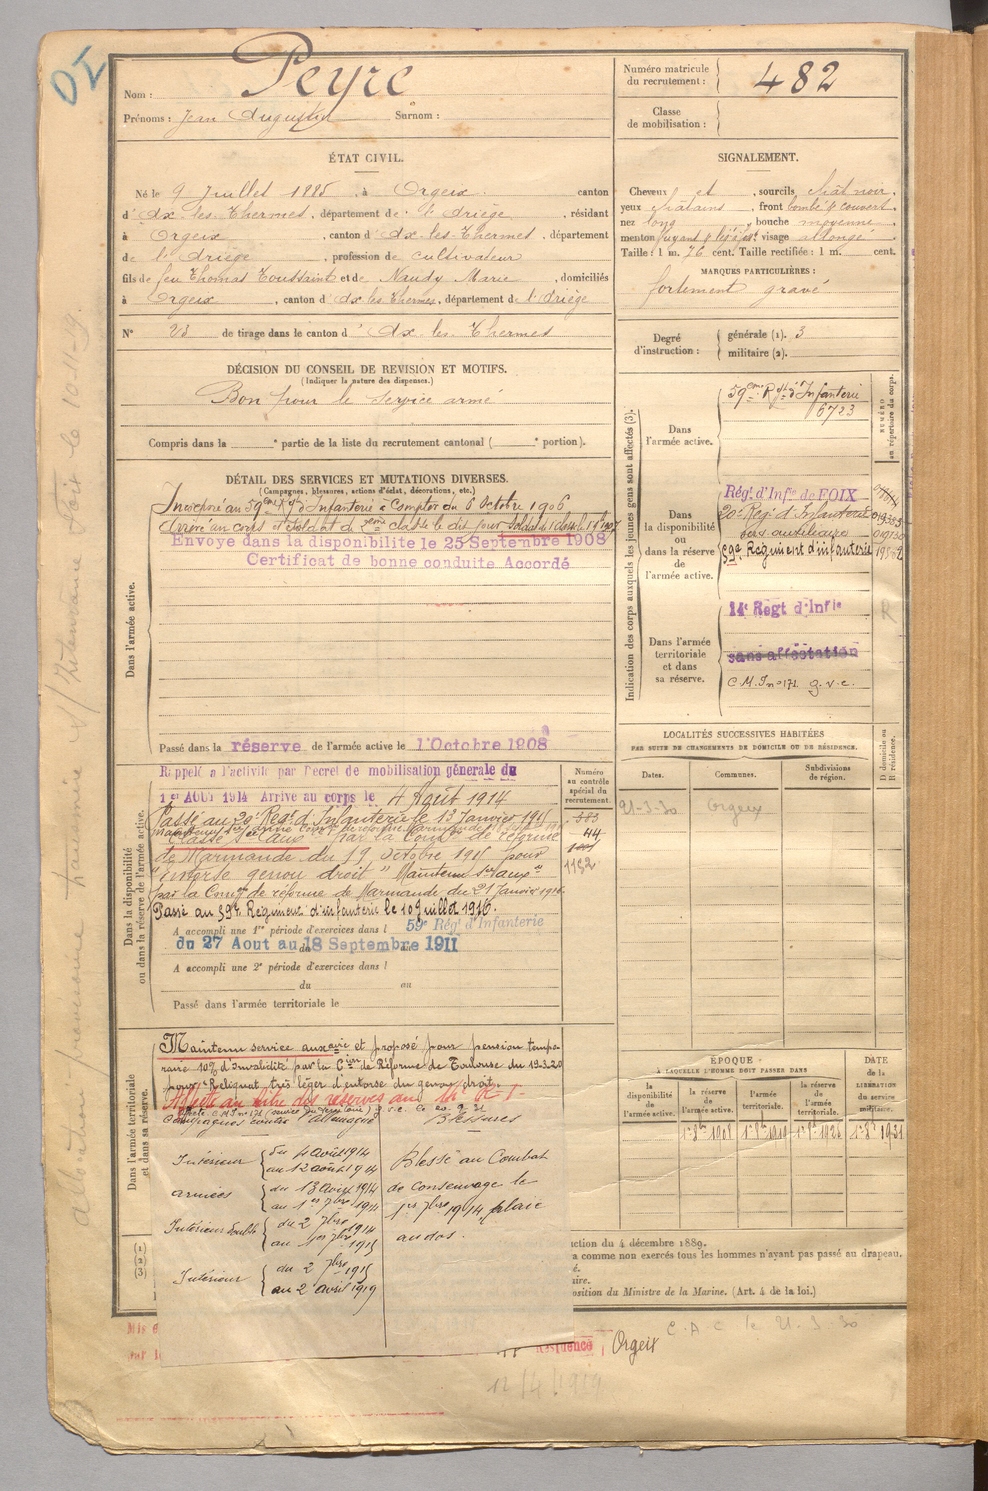 DI
Nom : Peyre
Prénoms : Jean Augustin Surnom :
Numéro matricule du recrutement : 482
Classe de mobilisation :
ÉTAT CIVIL.
Né le 9 Juillet 1885, à Orgeix, canton
d'Ax-les-Thermes, département de l'Ariège, résidant
à Orgeix, canton d'Ax-les-Thermes, département
de l'Ariège, profession de cultivateur
fils de feu Thomas Toussaint et de Naudy Marie, domiciliés
à Orgeix, canton d'Ax les Thermes, département de l'Ariège
N° 23 de tirage dans le canton d'Ax les Thermes
SIGNALEMENT.
Cheveux et, sourcils chât noir,
yeux châtains, front bombé & couvert,
nez long, bouche moyenne,
menton fuyant &, visage allongé.
Taille : 1 m. 76 cent. Taille rectifiée : 1 m. cent.
MARQUES PARTICULIÈRES :
fortement gravé
Degré d'instruction : générale (1). 3
militaire (2).
DÉCISION DU CONSEIL DE REVISION ET MOTIFS.
(Indiquer la nature des dispenses.)
Bon pour le service armé
Compris dans la e partie de la liste du recrutement cantonal ( e portion).
DÉTAIL DES SERVICES ET MUTATIONS DIVERSES.
(Campagnes, blessures, actions d'éclat, décorations, etc.)
Dans l'armée active.
Incorporé au 59eme Rgt d'Infanterie à Compter du 6 Octobre 1906
Arrivé au corps et soldat de 2eme classe le dit jour
Envoyé dans la disponibilité le 25 Septembre 1908
Certificat de bonne conduite Accordé
Passé dans la réserve de l'armée active le 1 Octobre 1908
Dans la disponibilité ou dans la réserve de l'armée active.
Rappelé à l'activité par Décret de mobilisation générale du
1er AOUT 1914 Arrivé au corps le 4 Août 1914
Passé au 20e Régt d'Infanterie le 13 Janvier 1915
Classé Sce Auxe par la Comon de réforme
de Marmande du 19 octobre 1915 pour
"entorse genou droit" Maintenu Sce auxe
par la Comon de réforme de Marmande du 21 Janvier 1916
Passé au 59e Régiment d'infanterie le 10 Juillet 1916.
A accompli une 1re période d'exercices dans l 59e Régt d'Infanterie
du 27 Aout au 18 Septembre 1911
A accompli une 2e période d'exercices dans l
du au
Passé dans l'armée territoriale le
Numéro au contrôle spécial du recrutement.
44
1152
Dans l'armée territoriale et dans sa réserve.
Maintenu service auxaire et proposé pour pension tempo-
raire 10% d'invalidité par la Cion de Réforme de Toulouse du 19-3-20
pour "Reliquat très léger d'entorse du genou droit.
Affecté au titre des réserves au 14e R I
Campagnes contre l'Allemagne
Blessures
Intérieur du 4 août 1914 au 12 août 1914
armées du 13 Août 1914 au 1er 7bre 1914
Intérieur double du 2 7bre 1914 au 1er 7bre 1915
Intérieur du 2 7bre 1915 au 2 avril 1919
Blessé au Combat
de Consenvage le
1er 7bre 1914 plaie
au dos.
(1)
(2)
(3)
Indication des corps auxquels les jeunes gens sont affectés (3).
NUMÉRO au répertoire du corps.
Dans l'armée active.
59eme Rgt d'Infanterie
6723
Dans la disponibilité ou dans la réserve de l'armée active.
Régt d'Infie de FOIX
20e Régt d'Infanterie
Sces auxiliaire
59e Régiment d'infanterie
Dans l'armée territoriale et dans sa réserve.
14e Regt d'Infie
sans affectation
C.M.I n° 171 g.v.c.
LOCALITÉS SUCCESSIVES HABITÉES
PAR SUITE DE CHANGEMENTS DE DOMICILE OU DE RÉSIDENCE.
Dates. Communes. Subdivisions de région. D domicile ou R résidence.
21-3-30 Orgeix R
ÉPOQUE
À LAQUELLE L'HOMME DOIT PASSER DANS
la disponibilité de l'armée active. la réserve de l'armée active. l'armée territoriale. la réserve de l'armée territoriale.
DATE de la LIBÉRATION du service militaire.
1er 8bre 1908 1er 8bre 1919 1er 8bre 1926 1er 8bre 1931
ction du 4 décembre 1889.
a comme non exercés tous les hommes n'ayant pas passé au drapeau.
é.
ire.
osition du Ministre de la Marine. (Art. 4 de la loi.)
Résidence Orgeix
C.A.C le 21-3-30
12/4/1919